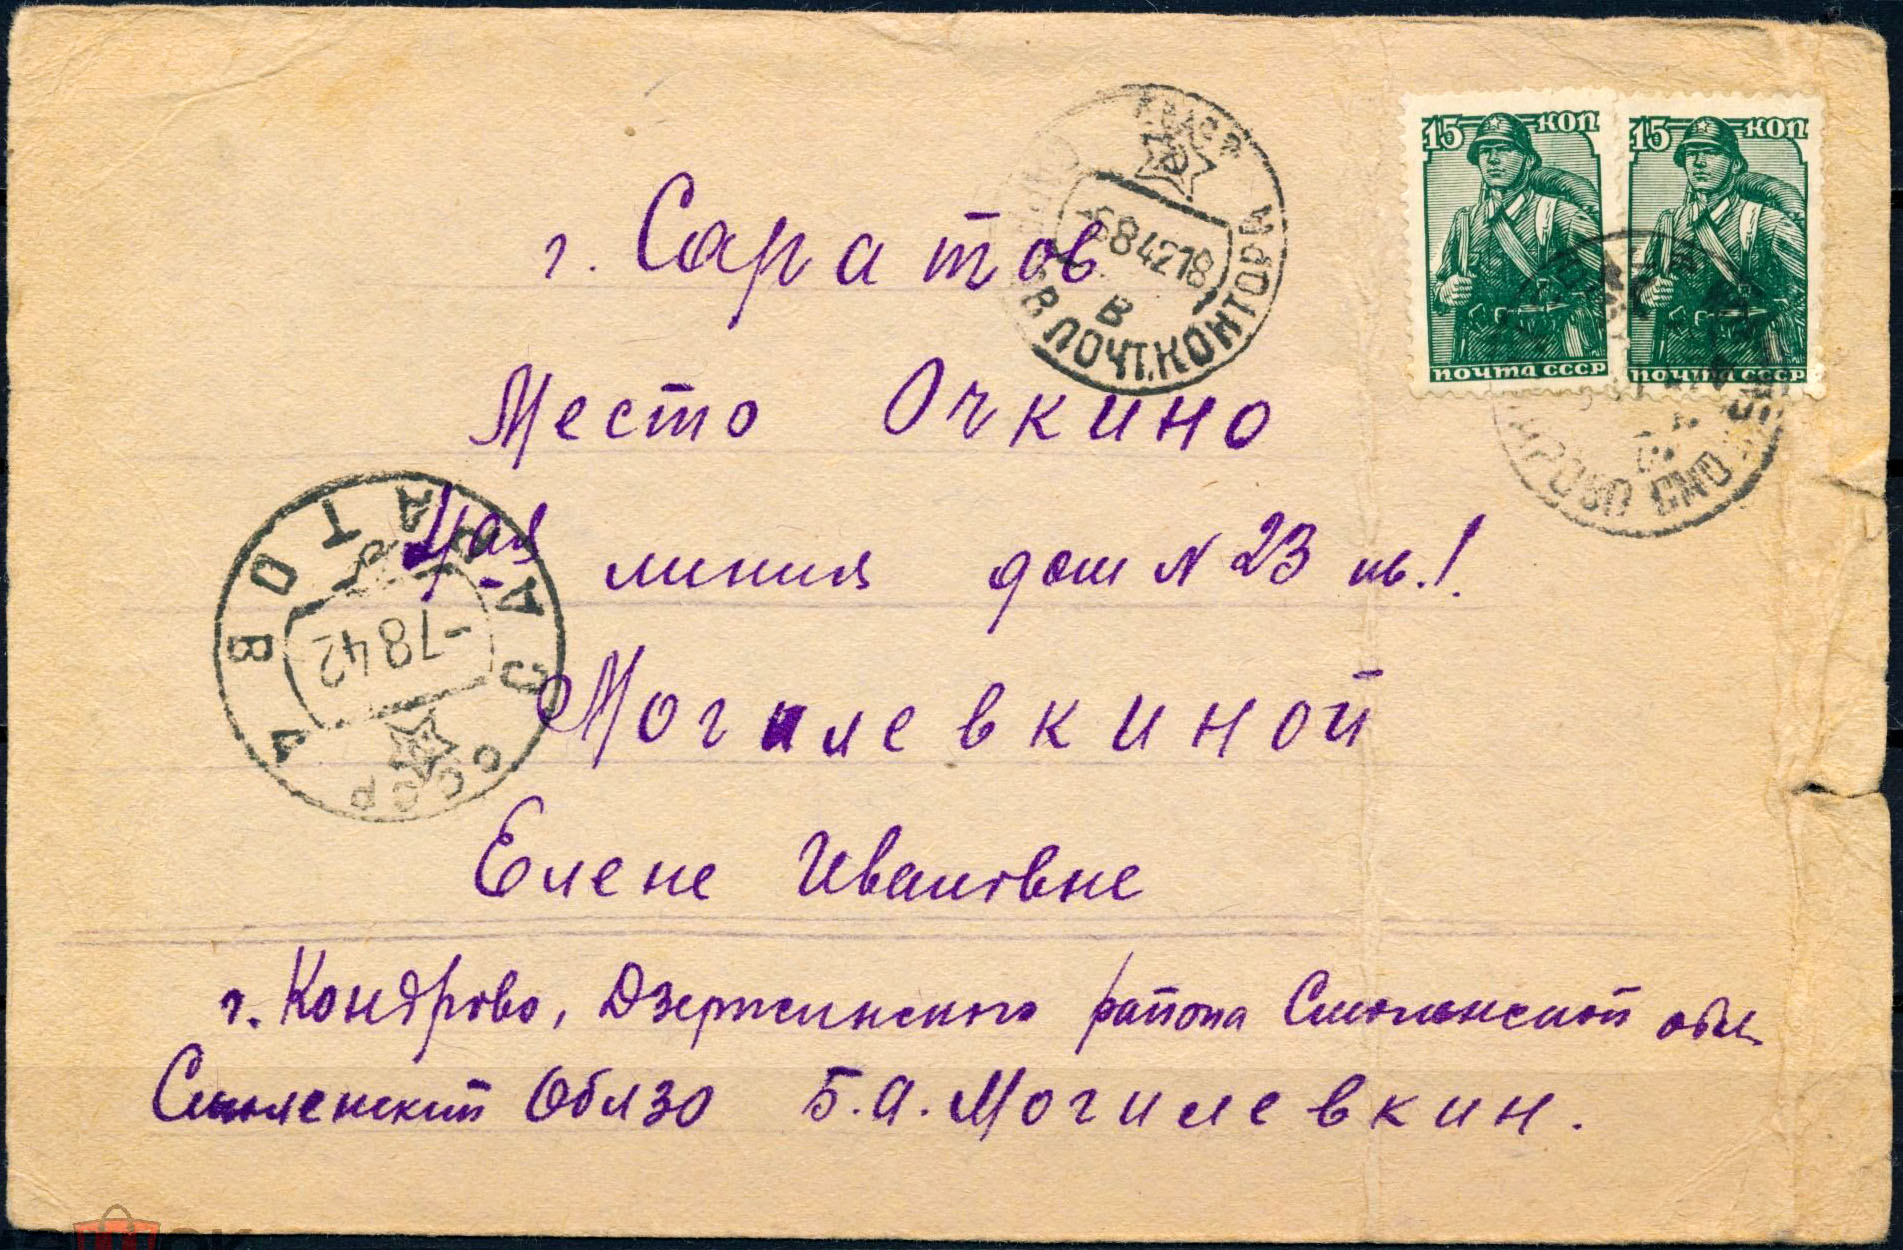 15 КОП 15 КОП
ПОЧТА СССР ПОЧТА СССР
-6 8 42 18
В
ПОЧТ. КОНТОРА
г. Саратов
Место Очкино
линия дом N 23 кв. 1
САРАТОВ
-7 8 42
СССР
Могилевкиной
Елене Ивановне
г. Кондрово, Дзержинского района Смоленской обл.
Смоленский Облзо Б.А. Могилевкин.